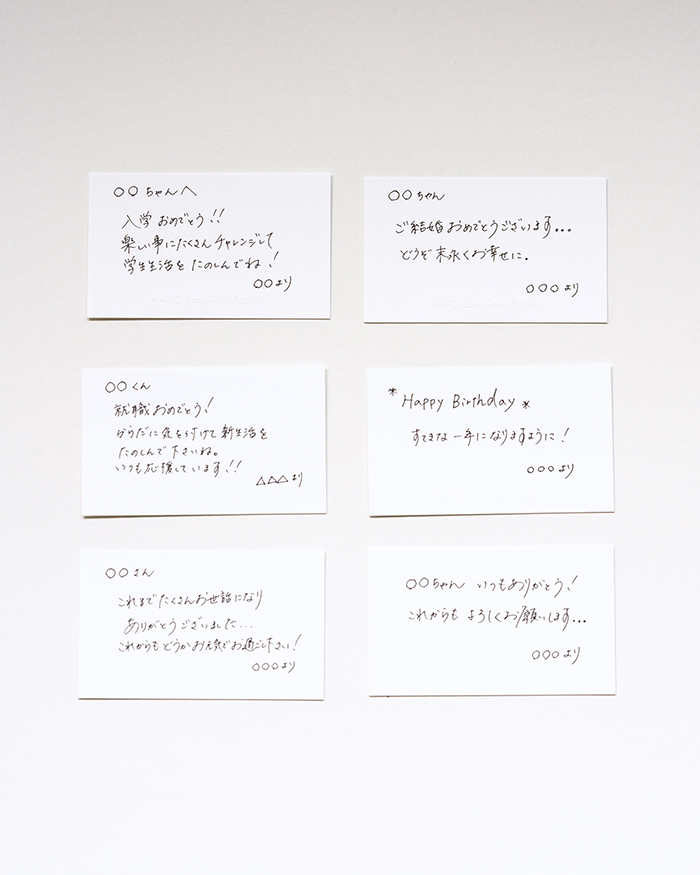 ○○ちゃんへ
入学おめでとう!!
楽しい事にたくさんチャレンジして
学生生活をたのしんでね!
○○より
○○ちゃん
ご結婚おめでとうございます...
どうぞ末永くお幸せに.
○○○より
○○くん
就職おめでとう!
からだに気を付けて新生活を
たのしんで下さいね。
いつも応援しています!!
△△△より
*Happy Birthday*
すてきな一年になりますように!
○○○より
○○さん
これまでたくさんお世話になり
ありがとうございました...
これからもどうかお元気でお過ごし下さい!
○○○より
○○ちゃん いつもありがとう!
これからも よろしくお願いします...
○○○より